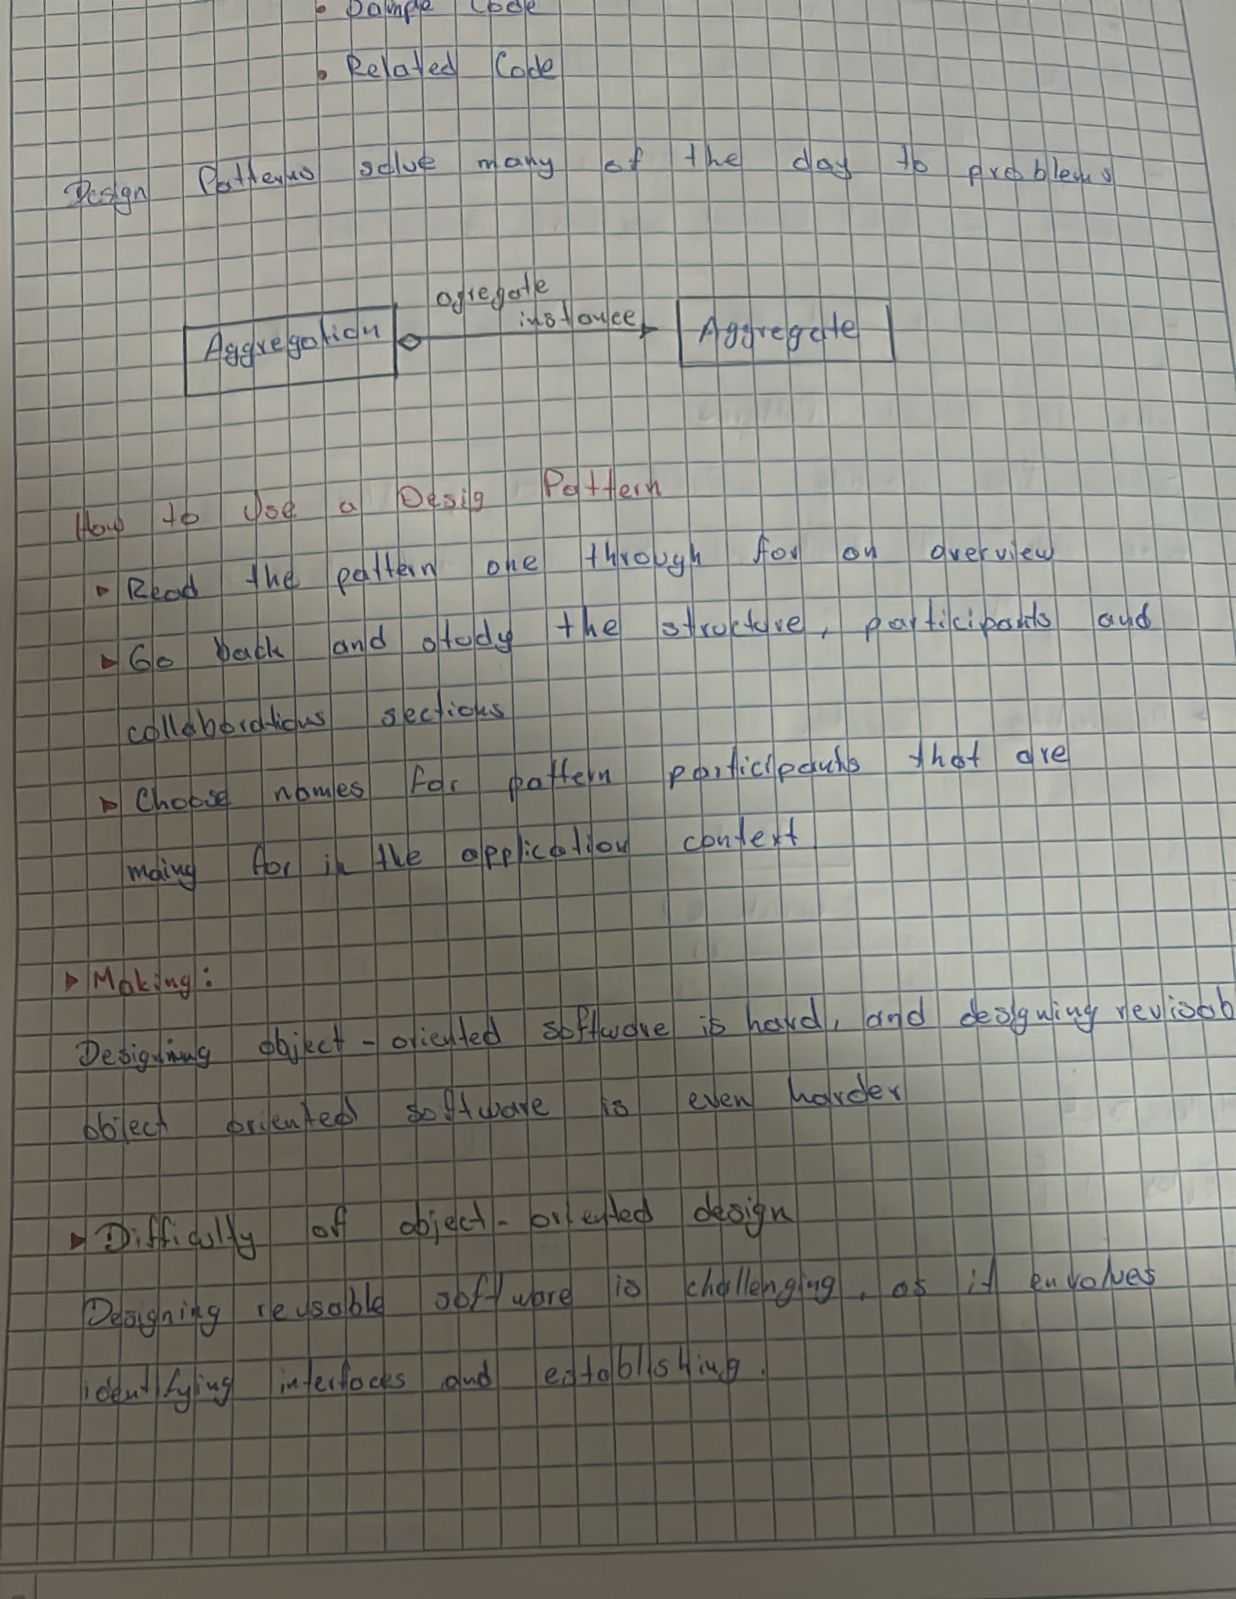 • Sample Code
• Related Code
Design Patterns solve many of the day to problems
agregate
instance
Aggregation
Aggregate
How to Use a Desig Pattern
▸ Read the pattern one through for an overview
▸ Go back and study the structure, participants and
collaborations sections
▸ Choose names for pattern participants that are
for in the application context
▸ Making:
Designing object-oriented software is hard, and designing
object oriented software is even harder
▸ Difficulty of object-oriented design
Designing reusable software is challenging, as it envolves
identifying interfaces and establishing.